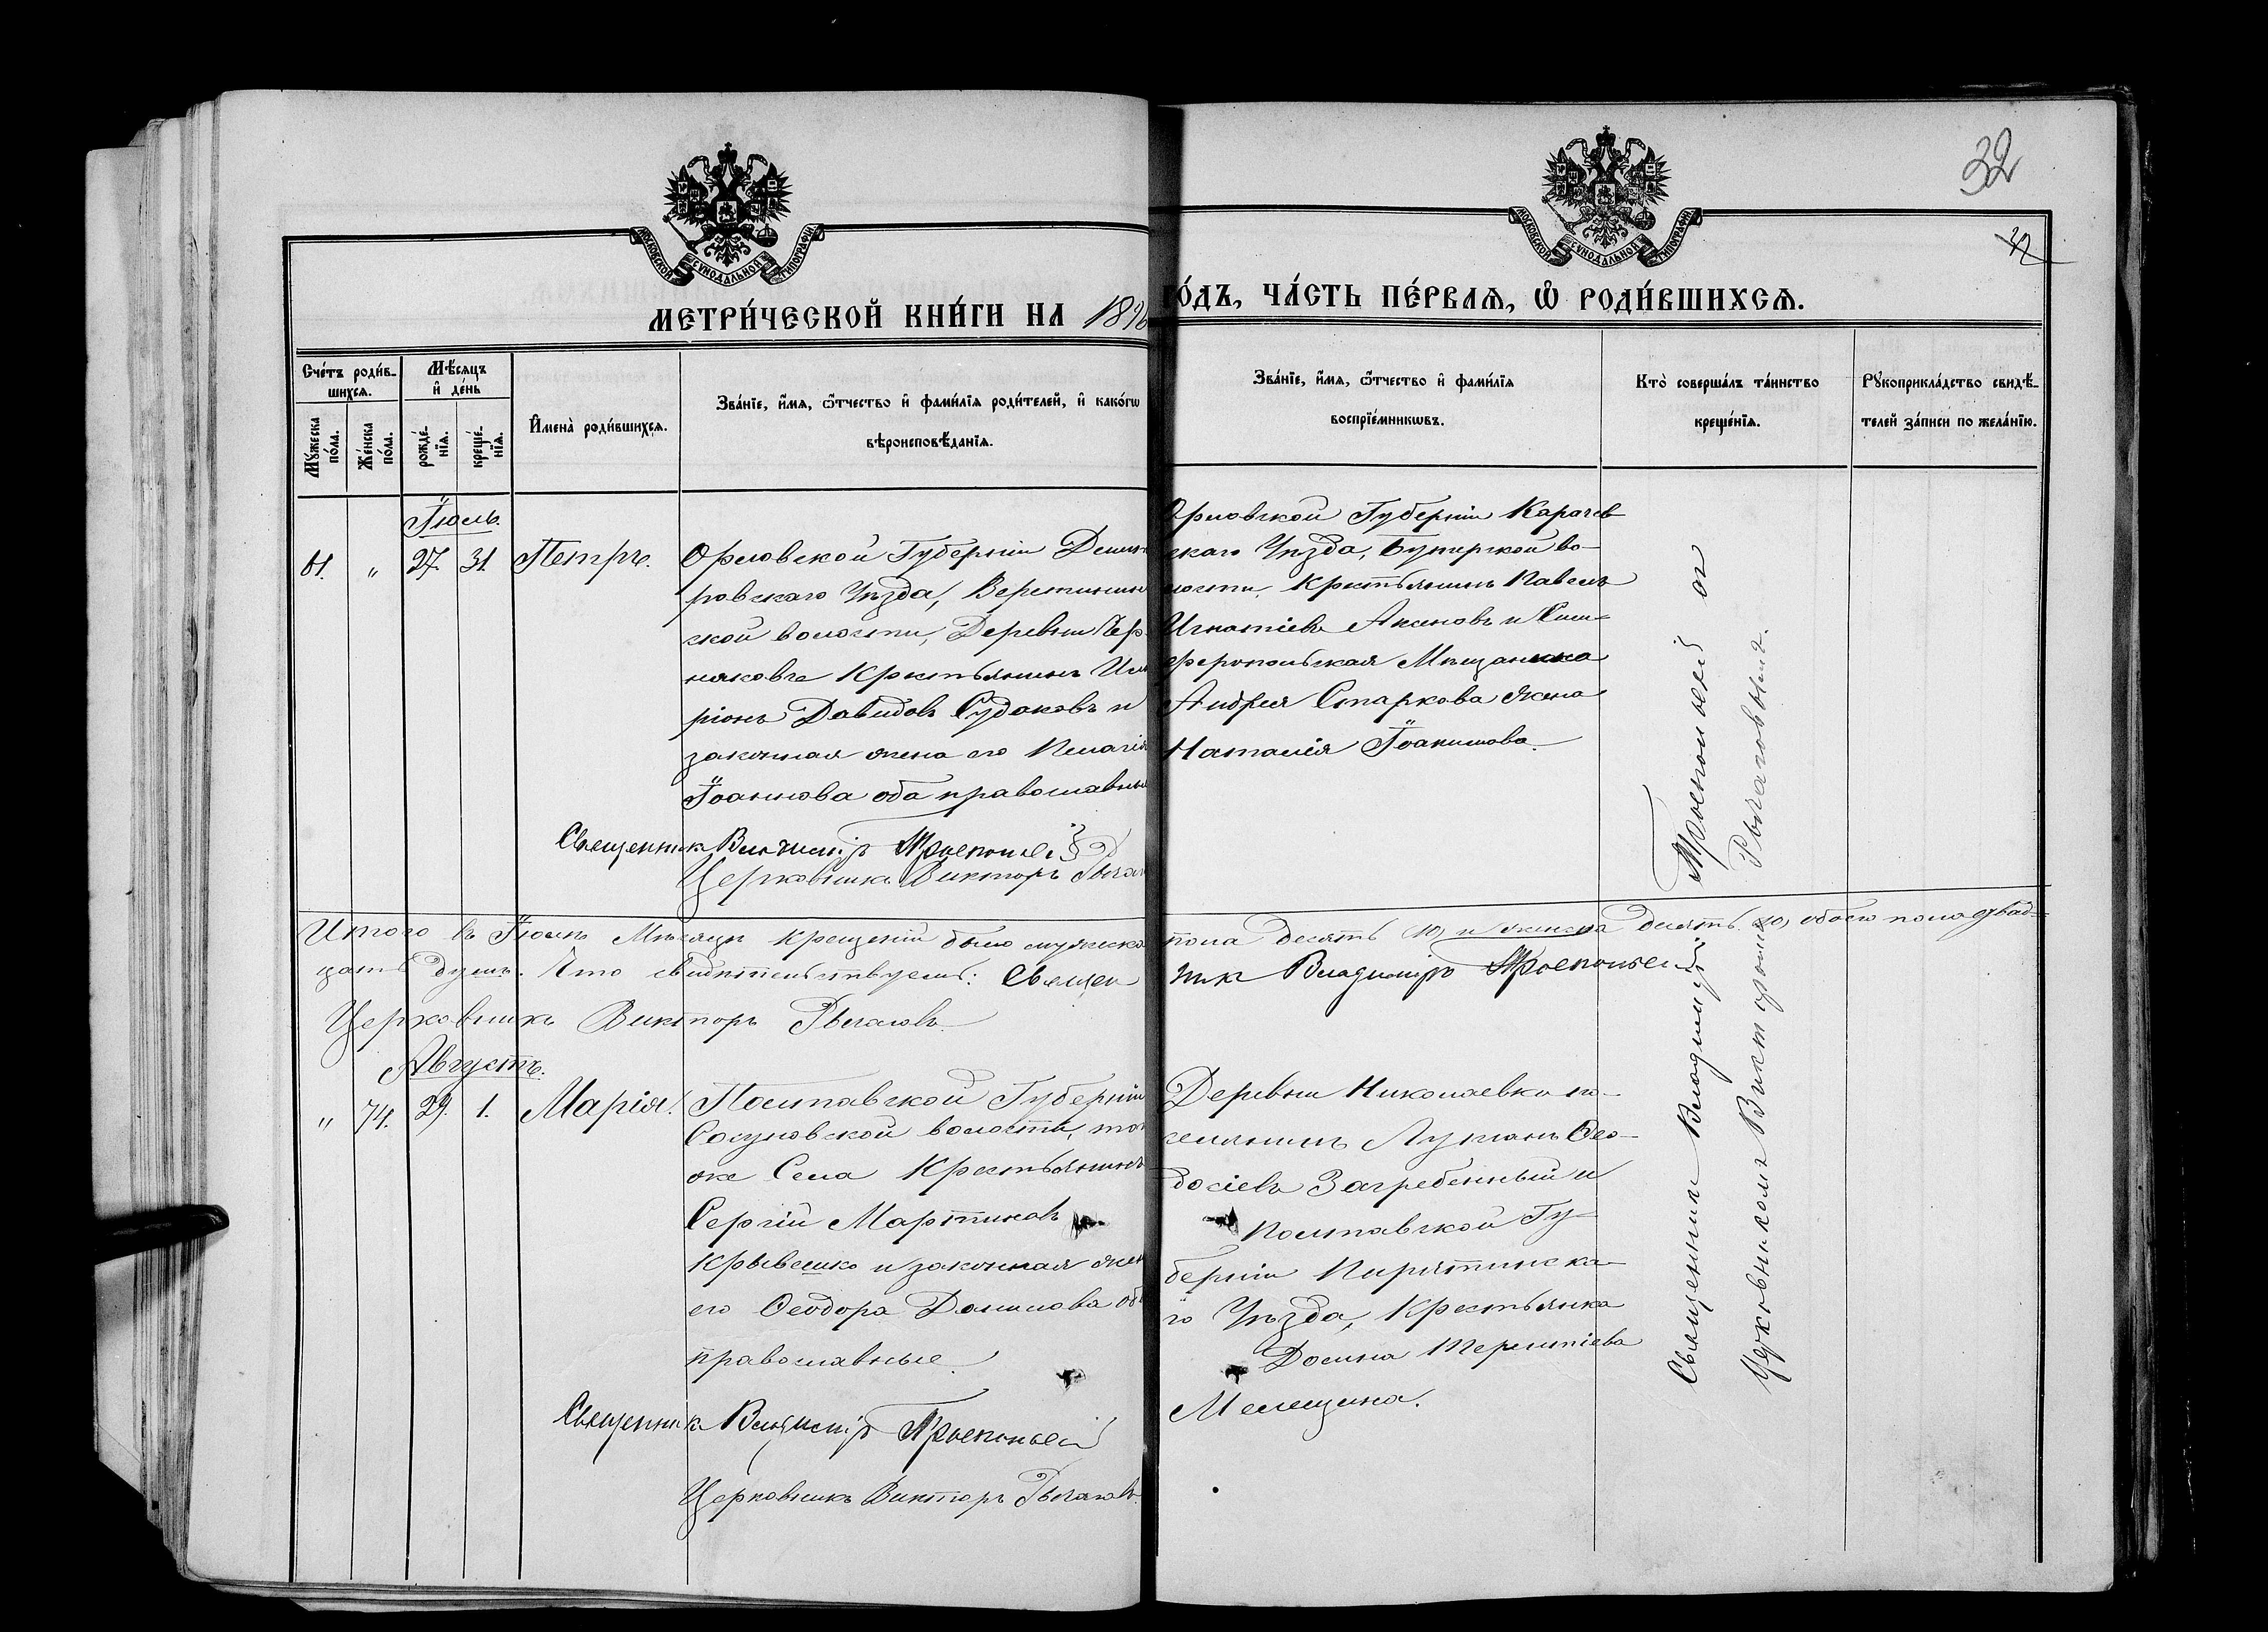 32
32
МОСКОВСКОЙ СѴНОДАЛЬНОЙ ТИПОГРАФІИ
МОСКОВСКОЙ СѴНОДАЛЬНОЙ ТИПОГРАФІИ
МЕТРИ́ЧЕСКОЙ КНИ́ГИ НА 1896
ГО́ДЪ, ЧА́СТЬ ПЕ́РВАѦ, Ѽ РОДИ́ВШИХСѦ.
Сче́тъ роди́в-
шихсѧ.
Мѣ́сѧцъ
и҆ де́нь
Мꙋ́жеска по́ла.
Же́нска по́ла.
рожде́-
нїѧ.
креще́-
нїѧ.
И҆мена̀ роди́вшихсѧ.
Зва́нїе, и҆́мѧ, ѻ҆́тчество и҆ фами́лїѧ роди́телей, и҆ како́гѡ
вѣроисповѣ́данїѧ.
Зва́нїе, и҆́мѧ, ѻ҆́тчество и҆ фами́лїѧ
воспрїе́мникѡвъ.
Кто̀ соверша́лъ та́инство
креще́нїѧ.
Рꙋкоприкла́дство свидѣ́-
телей за́писи по жела́нїю.
Іюль.
61. " 27. 31. Петръ.
Орловской Губерніи Дмит
ровскаго Уѣзда,
ской волости, Деревни Чер
няковъ Крестьянинъ Ила
ріонъ Давидовъ Судаковъ и
законная жена его Пелагія
Іоаннова оба православны
Священникъ Владиміръ Троепольскій
Церковникъ Викторъ Рыча
Орловской Губерніи Карачев
скаго Уѣзда,
волости, Крестьянинъ Павелъ
Игнатіевъ Аксеновъ и Сим-
феропольская Мѣщанка
Андрея Старкова жена
Наталія Іоакимова.
Итого въ Іюлѣ Мѣсяцѣ крещеній было мужеска
пола десять (10) и женска десять (10) обоего пола двад-
цать душъ. Что свидѣтельствуемъ: Священ
никъ Владиміръ Троепольскій
Церковникъ Викторъ Рычаговъ.
Августъ.
" 74. 29. 1. Марія.
Полтавской Губерніи
волости, того
же Села Крестьянинъ
Сергій Мартиновъ
и законная жен
его Ѳеодора Данилова об
православные.
Священникъ Владиміръ Троепольскій
Церковникъ Викторъ Рычаговъ.
Деревни Николаевки по-
селянинъ Лукіанъ Ѳео-
досіевъ Загребенный и
Полтавской Гу-
берніи Пирятинска-
го Уѣзда, Крестьянка
Домна Терентіева
Мелещина.
Священникъ Владиміръ Троепольскій съ
Церковникомъ Викторомъ Рычаговымъ.